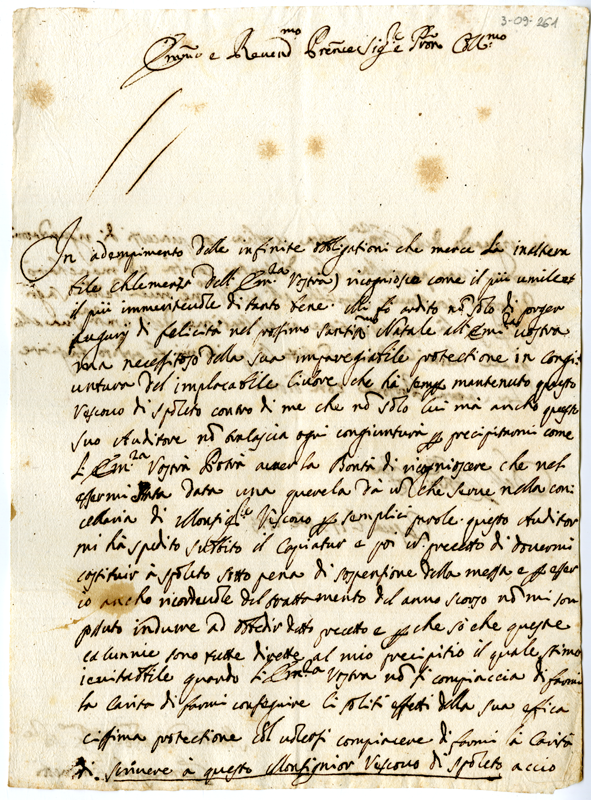 3-09-261
Em.mo e Revend.mo Prence Sig.re e Pron Coll.mo
In adempimento delle infinite obligationi che merce la inaltera
bile Chlemenza dell' Em.za Vostra) ricogniosce come il più umile et
il più immeriteuole di tanto bene. mi fò ardito nò solo di porger
augurij di felicità nel prossimo santiss.mo Natale all' Em.za uostra
ma necessitoso della sua impareggiabile protectione in congi
untura del implacabile liuore che hà sempre mantenuto questo
Vescouo di Spoleto contro di me che nò solo lui mà ancho questo
suo Auditore nò tralascia ogni congiuntura per precipitarmi come
L' Em.za Vostra Potrà auer la Bontà di ricognioscere che nel
essermi stata data una querela dà che serue nella can
cellaria di Monsig.re Vescouo per semplici parole. questo Auditor
mi hà spedito subbito il Capiatur e poi precetto di douermi
costituir à Spoleto sotto pena di sospensione della messa e per esser
io ancho ricordeuole del trattamento del anno scorso nò mi son
possuto indurre ad obbedir detto precetto e per che sò che queste
calunnie sono tutte dirette al mio precipitio il quale stimo
ineuitabile quando L' Em.za Vostra nò si compiaccia di farmi
la Carità di farmi conseguire li soliti effetti della sua effica
cissima protectione col uolersi compiacere di farmi la Carità
di scriuere à questo Monsignior Vescouo di Spoleto accio